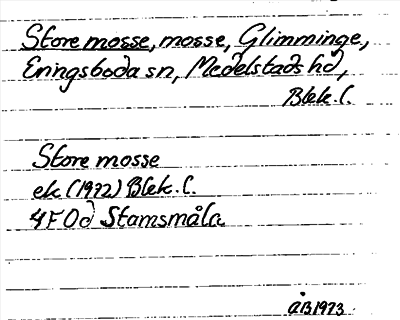 Store mosse, mosse, Glimminge,
Eringsboda sn, Medelstads hd,
Blek. l.
Store mosse
ek (1972) Blek. l.
4F0d Stamsmåla
ÅB1973